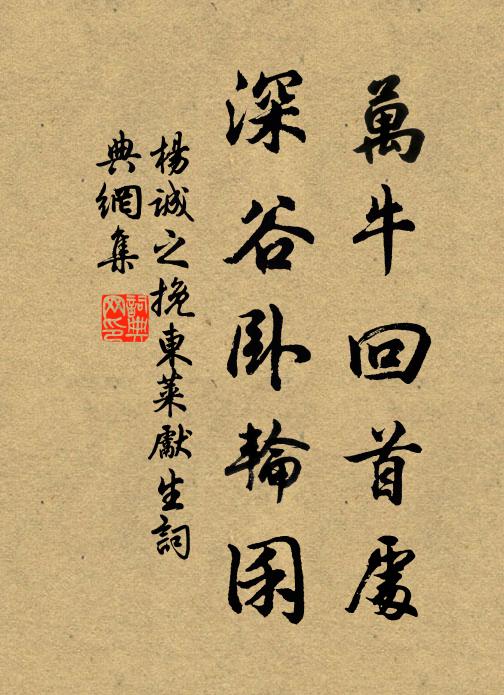 萬牛回首處
深谷卧輪囷
楊誠之挽東萊獻生詞
典網集
詞典
网印